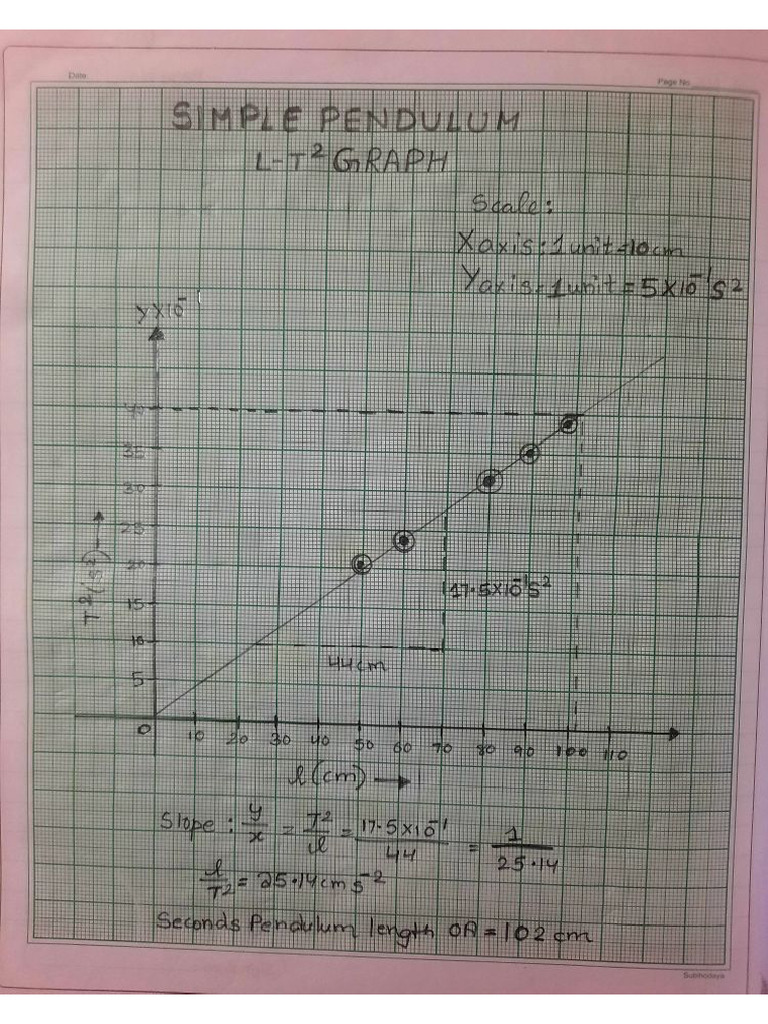 Date
Page No
SIMPLE PENDULUM
L-T² GRAPH
Scale:
X axis: 1 unit = 10 cm
Y axis: 1 unit = 5×10⁻¹ s²
Y×10⁻¹
40
35
30
25
20
15
10
5
T²(s²) →
17.5×10⁻¹s²
44 cm
0 10 20 30 40 50 60 70 80 90 100 110
l (cm) →
Slope : y/x = T²/l = 17.5×10⁻¹/44 = 1/25.14
l/T² = 25.14 cm s⁻²
Seconds Pendulum length OA = 102 cm
Subhodaya